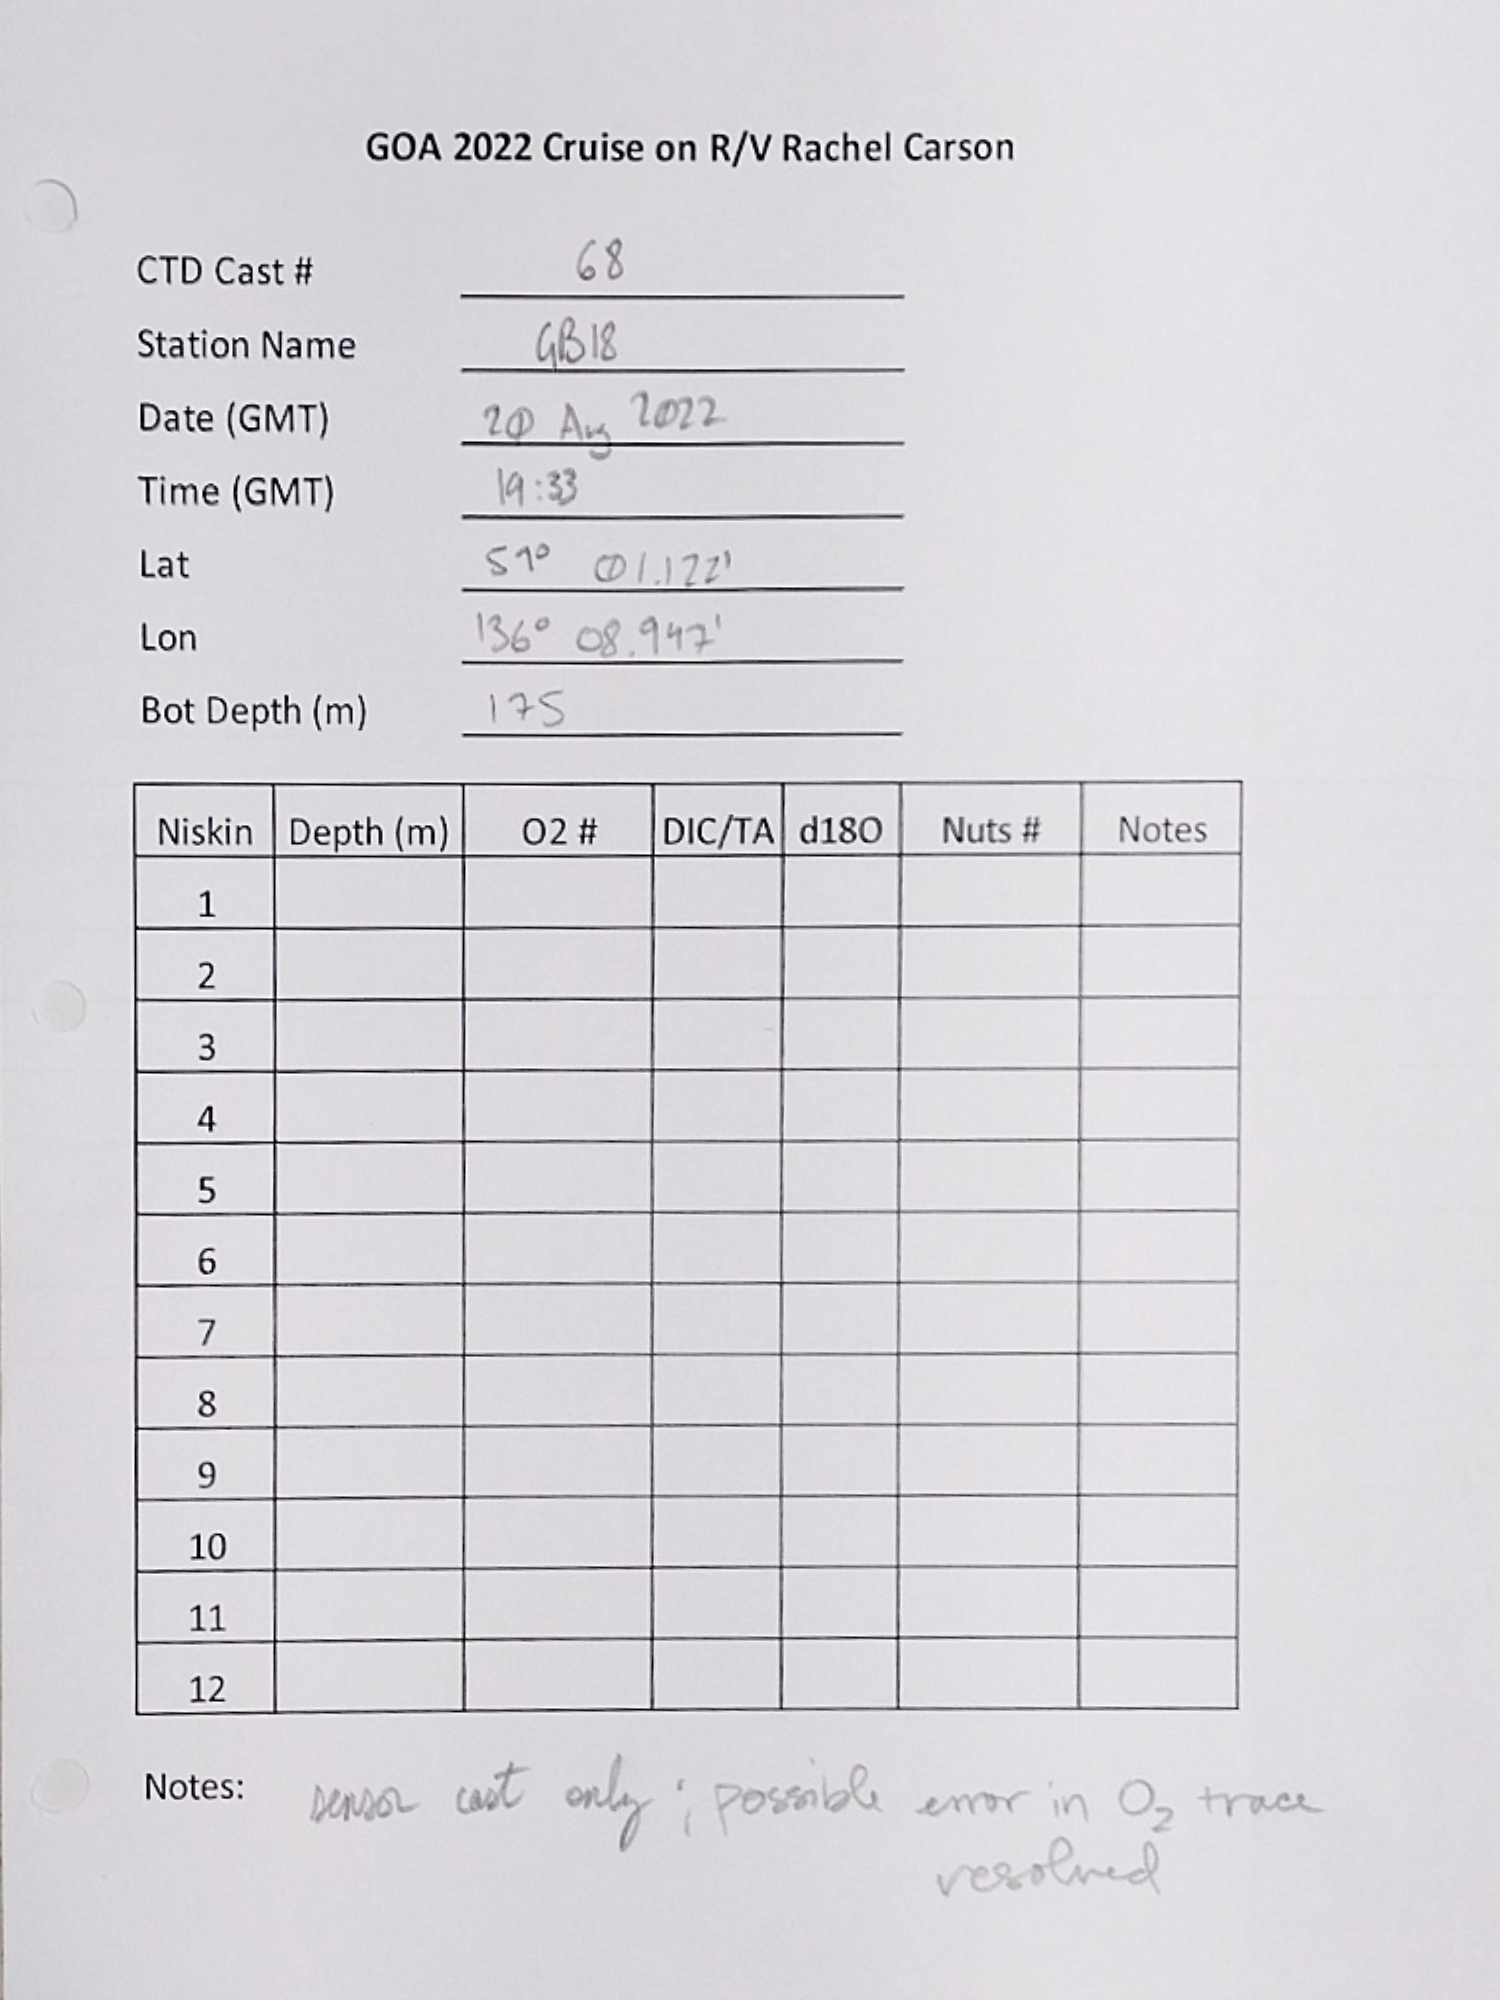 GOA 2022 Cruise on R/V Rachel Carson
CTD Cast # 68
Station Name GB18
Date (GMT) 20 Aug 2022
Time (GMT) 19:33
Lat 59° 01.122'
Lon 136° 08.947'
Bot Depth (m) 175
Niskin Depth (m) O2 # DIC/TA d18O Nuts # Notes
1
2
3
4
5
6
7
8
9
10
11
12
Notes: sensor cast only; possible error in O2 trace
resolved